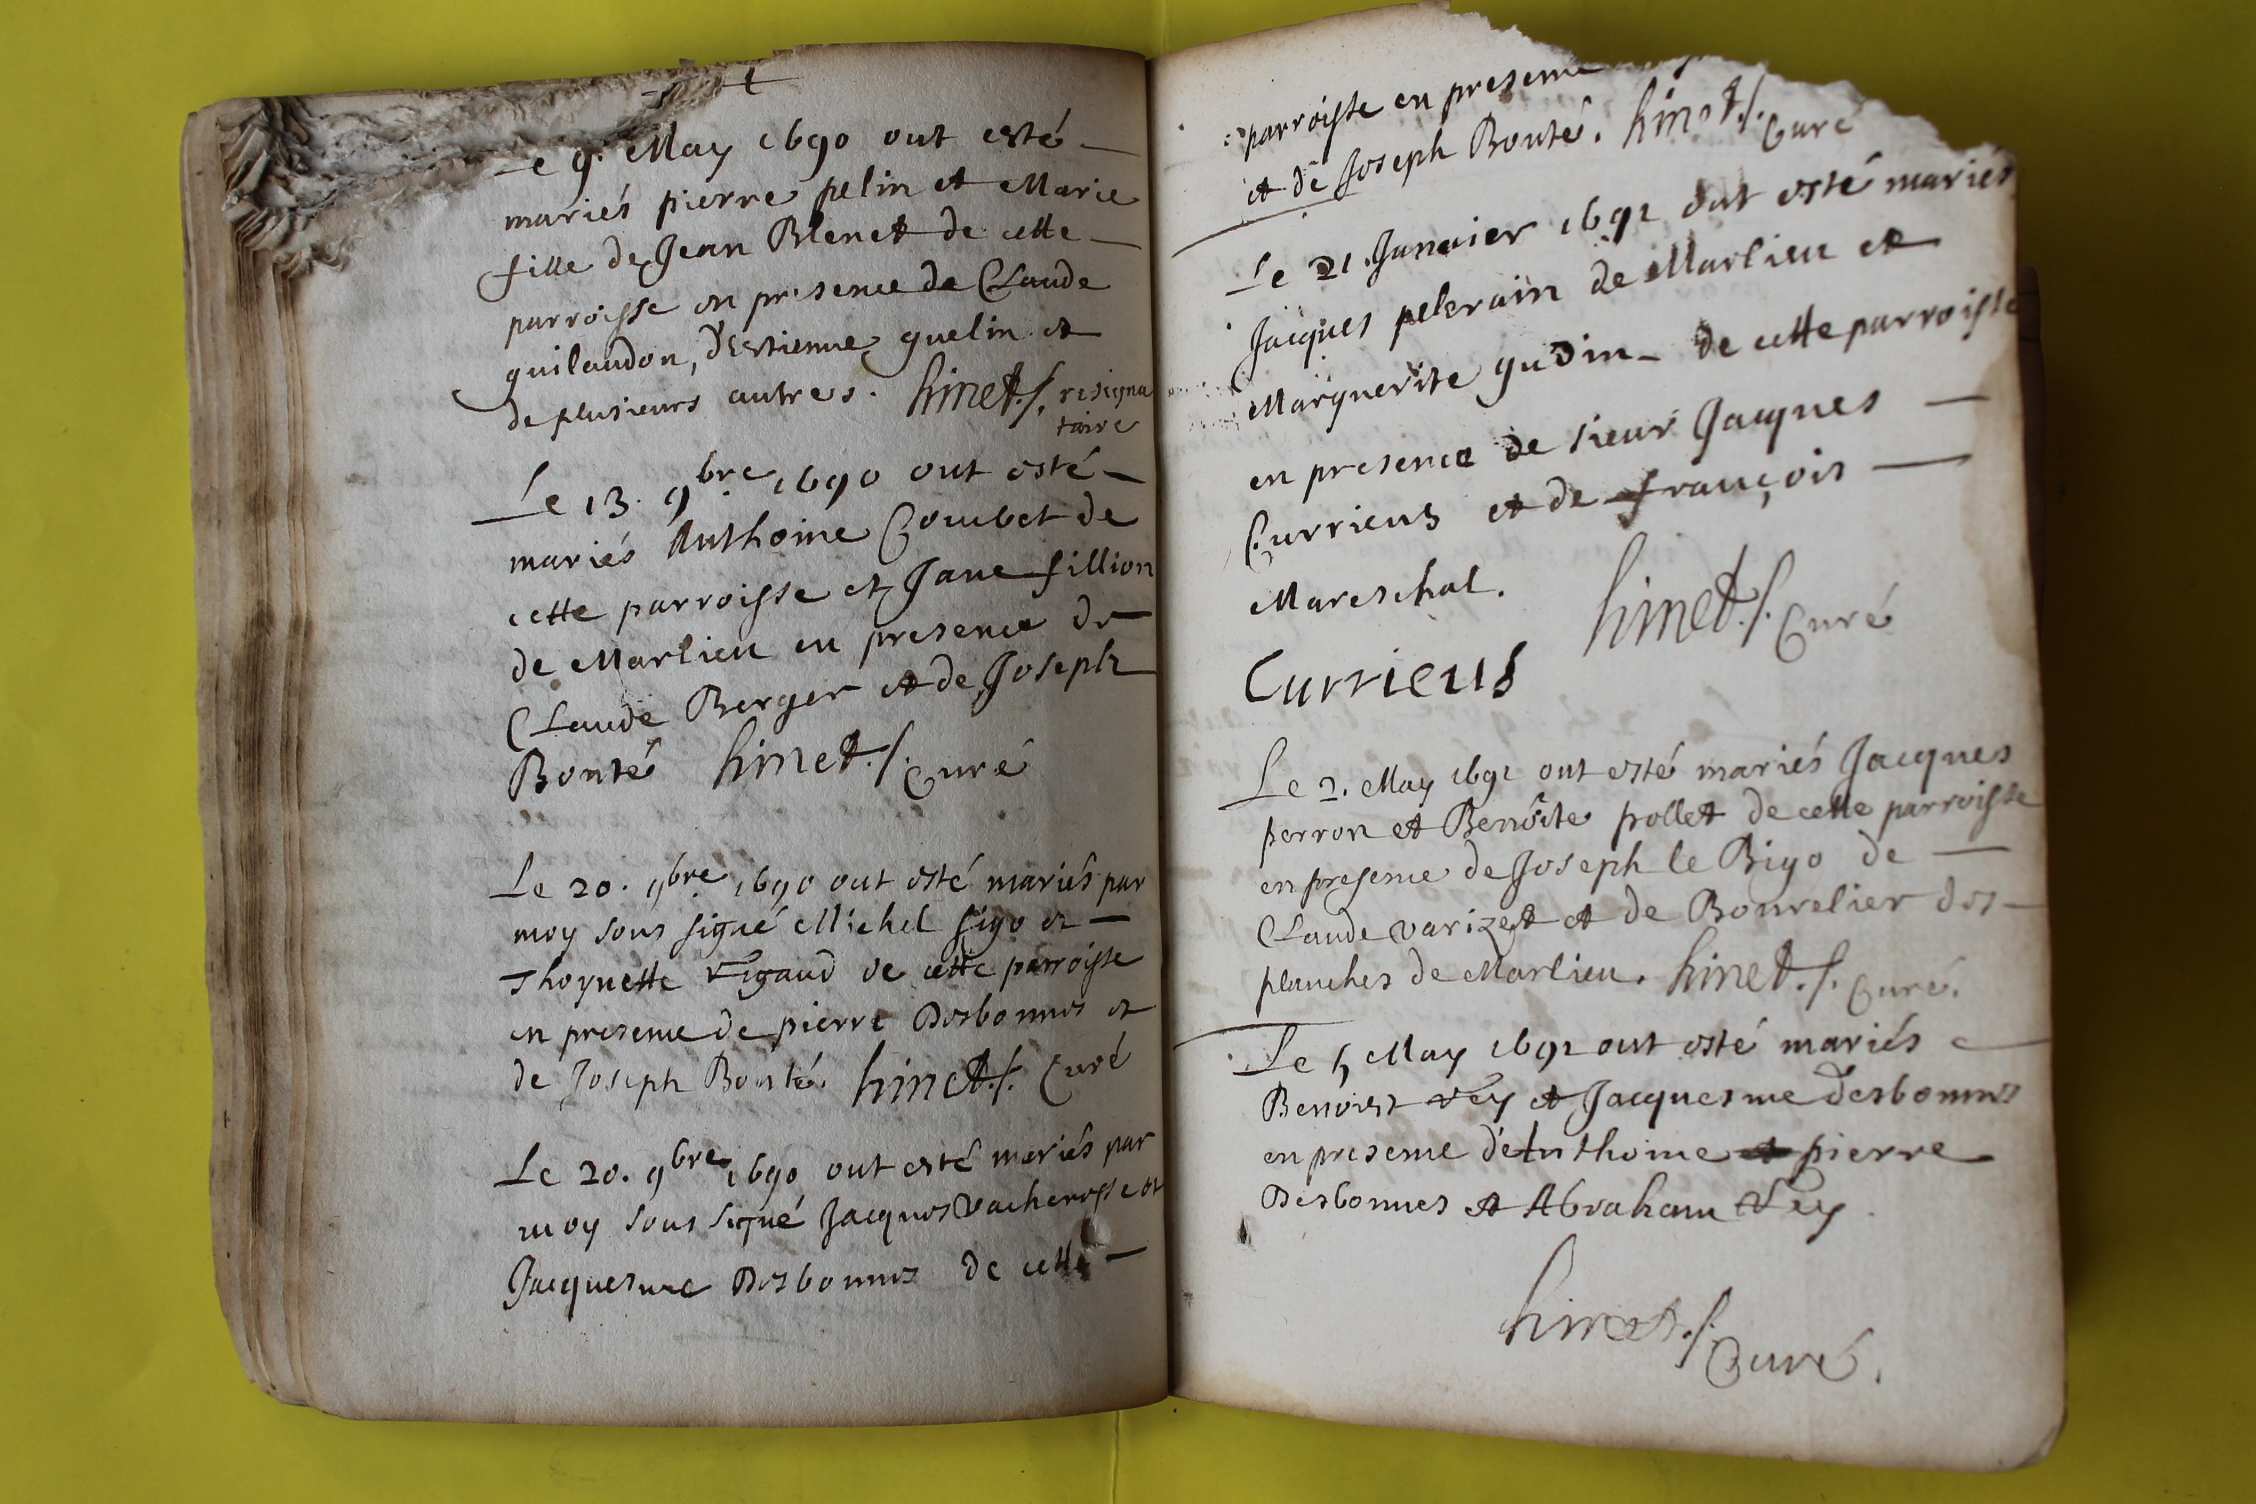 Le 9. May 1690 ont esté
mariés pierre pelin et Marie
fille de Jean Blenet de cette
parroisse en presence de Claude
guilaudon, d'Estienne guelin et
de plusieurs autres. hinet./. resigna
taire
Le 13. 9bre 1690 ont esté
mariés Anthoine Combet de
cette parroisse et Jane fillion
de Marlieu en presence de
Claude Berger et de Joseph
Bonté hinet./. Curé
Le 20. 9bre 1690 ont esté mariés par
moy sous signé Michel figo et
Thoynette Rigaud de cette parroisse
en presence de pierre Desbonnes et
de Joseph Bonté. hinet./. Curé
Le 20. 9bre 1690 ont esté mariés par
moy sous signé Jacques Vacheresse et
Jacquesme Desbonnes de cette
parroisse en presence
et de Joseph Bonté. hinet./. Curé
Le 21. Janvier 1691 ont esté mariés
Jacques pelerain de Marlieu et
Marguerite gudin de cette parroisse
en presence de sieur Jacques
Curtieus et de françois
Mareschal.
hinet./. Curé
Curtieus
Le 2. May 1691 ont esté mariés Jacques
perron et Benoîte pollet de cette parroisse
en presence de Joseph le Bigo de
Claude varizet et de Bourelier des
planches de Marlieu. hinet./. Curé.
Le 5 May 1691 ont esté mariés
Benoist Rey et Jacquesme desbonnes
en presence d'Anthoine pierre
Desbonnes et Abraham Rey.
hinet./. Curé.